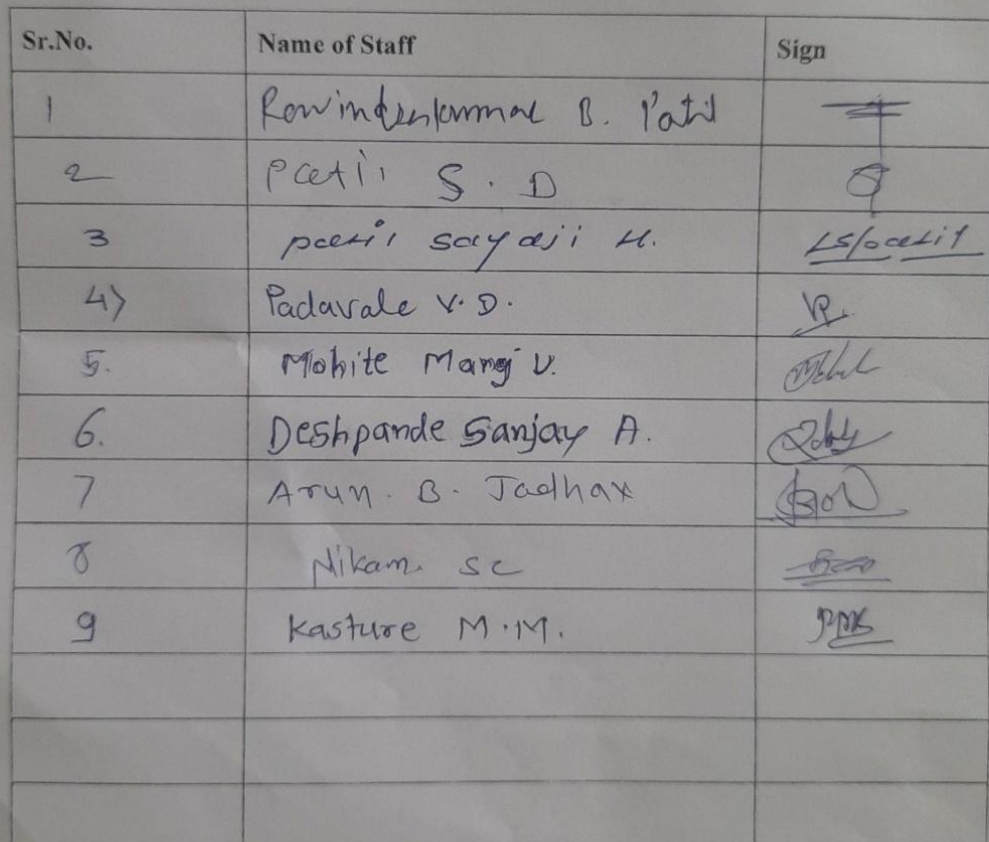 Sr.No. Name of Staff Sign
1 B. Patil
2 Patil S. D
3 patil sayaji H.
4) Padavale V. D.
5. Mohite V.
6. Deshpande Sanjay A.
7 Arun. B. Jadhav
8 Nikam. sc
9 Kasture M.M.